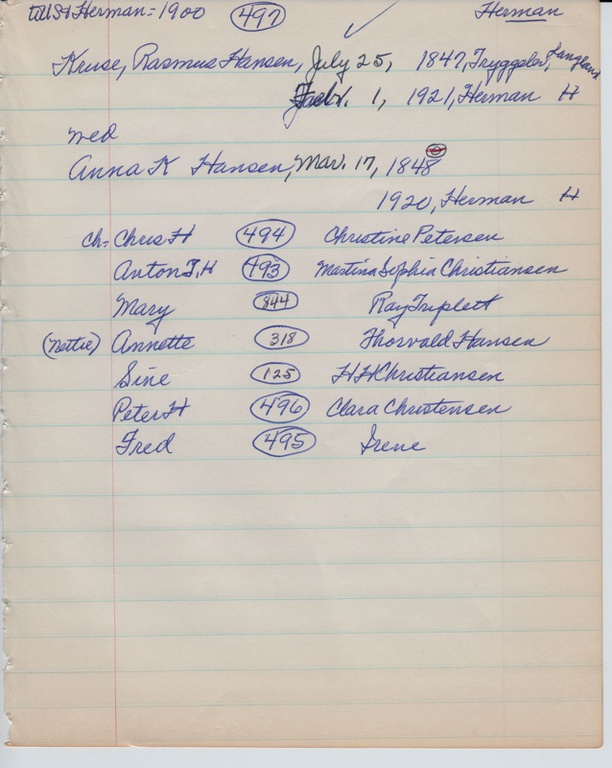 till St Herman = 1900 497 Herman
Kruse, Rasmus Hansen, July 25, 1847, Tryggelev, Langland
1, 1921, Herman H
med
Anna K Hansen, Mar. 17, 1848
1920, Herman H
ch = Chris H 494 Christine Petersen
Anton T. H 493 Martina Sophia Christiansen
Mary 844 Ray Triplett
(Nettie) Annette 318 Thorvald Hansen
Sine 125 H H Christiansen
Peter H 496 Clara Christensen
Fred 495 Irene